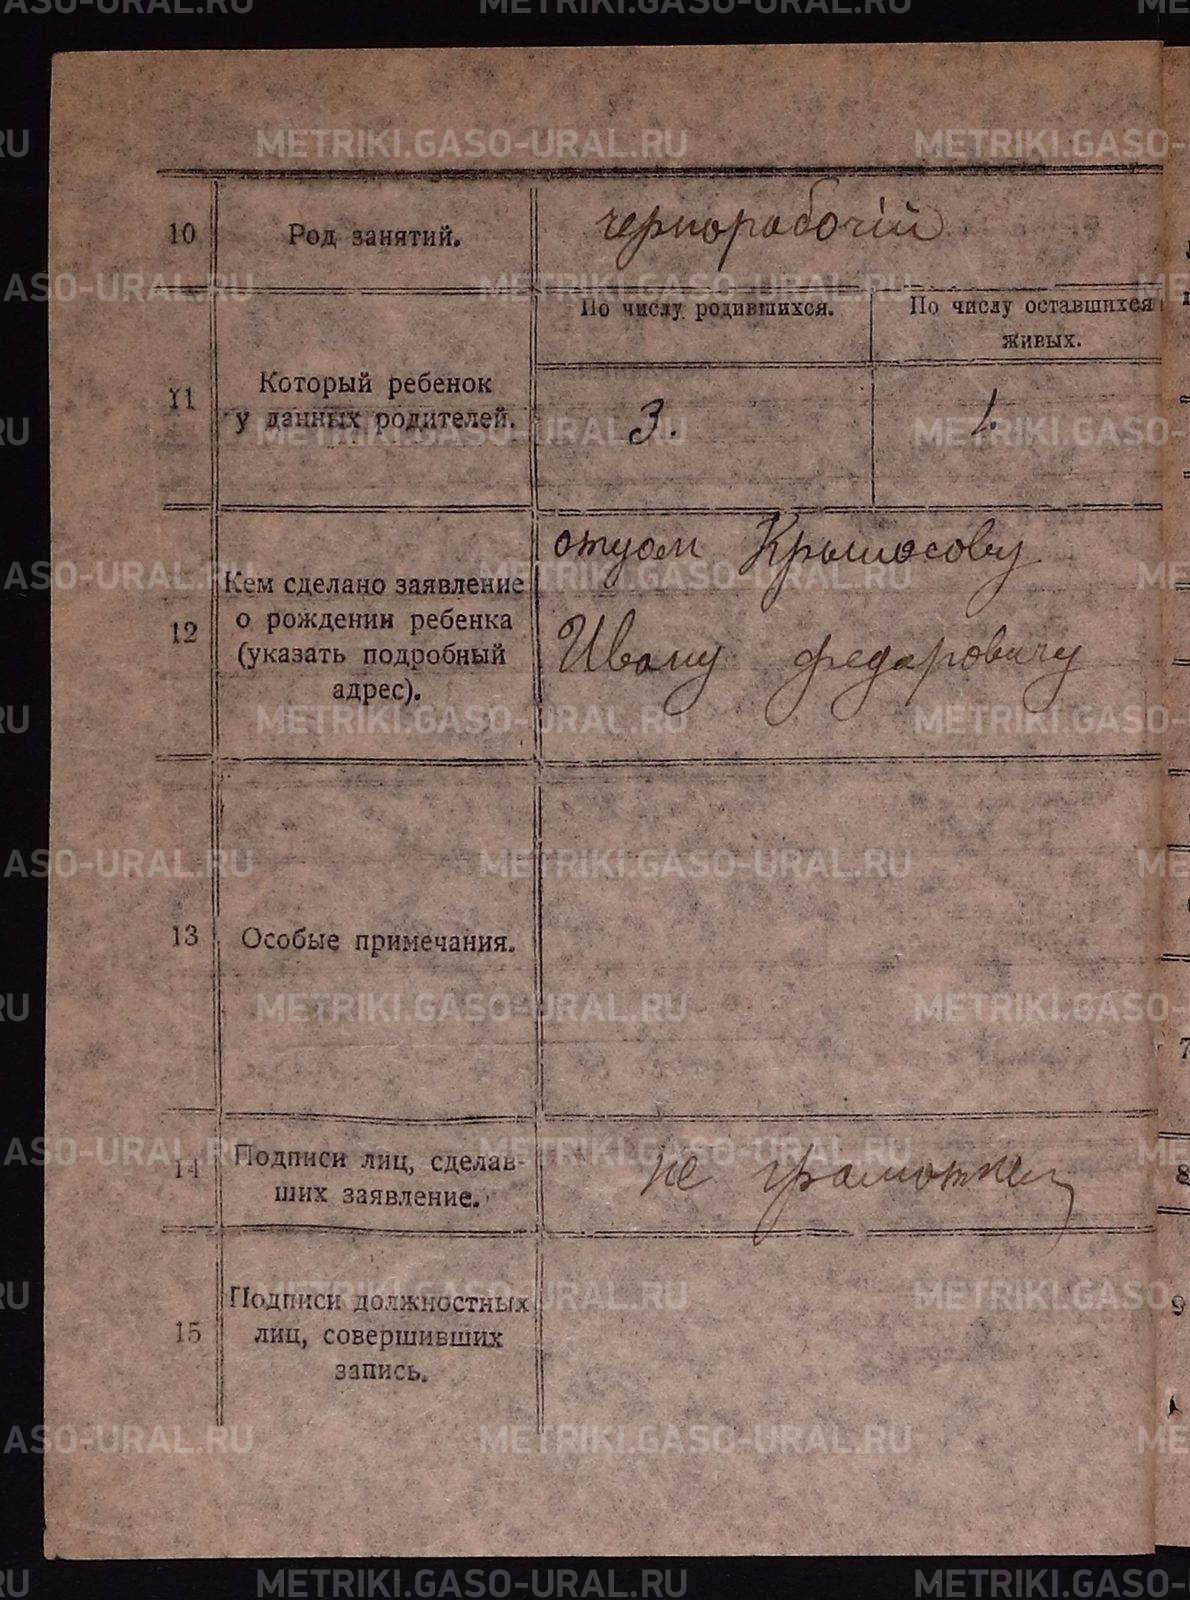 10
Род занятий.
чернорабочій
11
Который ребенок
у данных родителей.
По числу родившихся.
По числу оставшихся
живых.
3.
1.
12
Кем сделано заявление
о рождении ребенка
(указать подробный
адрес).
отцом Крылосову
Ивану федаровичу
13
Особые примечания.
14
Подписи лиц, сделав-
ших заявление.
не грамотней
15
Подписи должностных
лиц, совершивших
запись.
7
8
9
METRIKI.GASO-URAL.RU